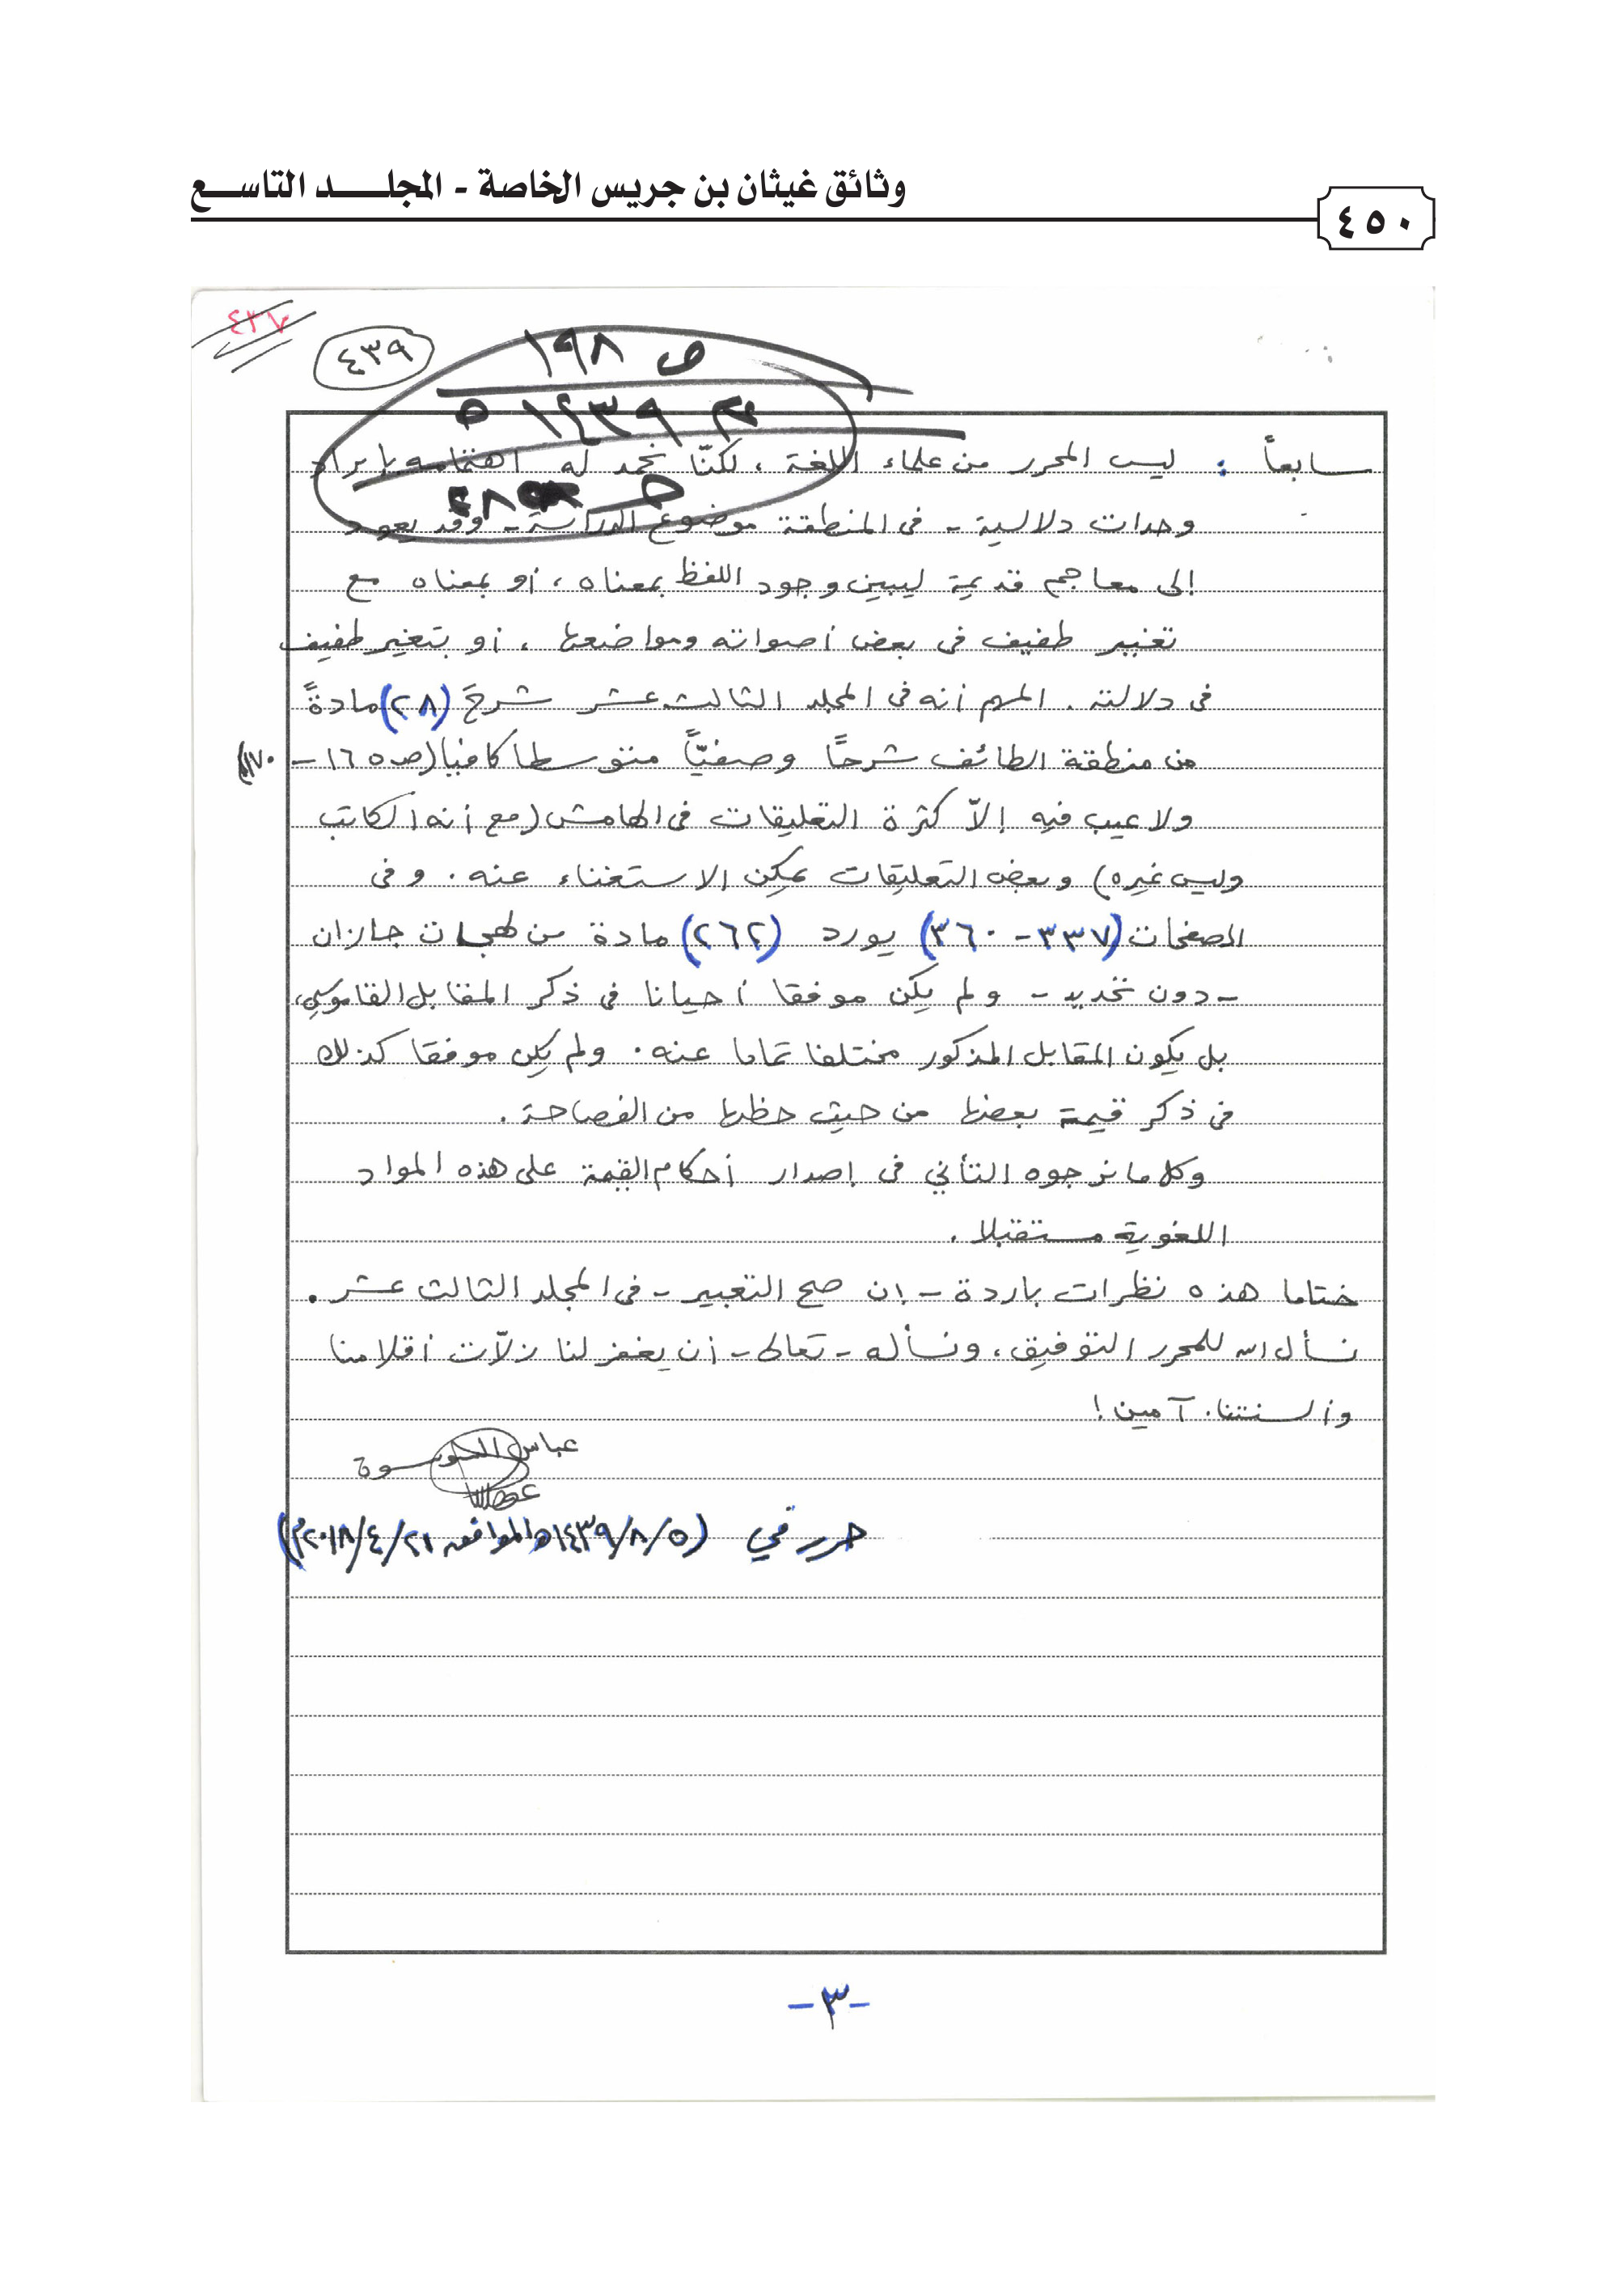 وثائق غيثان بن جريس الخاصة - المجلد التاسع
٤٥٠
٤٣٧
٤٣٩
ص ١٩٨
م ١٤٣٩ هـ
سابعاً : ليس المحرر من علماء اللغة ، لكنّا نحمد له اهتمامه بإيراد
وحدات دلالية - فى المنطقة موضوع الدراسة - وقد يعود
إلى معاجم قديمة ليبين وجود اللفظ بمعناه ، أو بمعناه مع
تغيير طفيف فى بعض أصواته ومواضعها ، أو بتغير طفيف
فى دلالته . المهم أنه فى المجلد الثالث عشر شرحَ (٢٨) مادةً
من منطقة الطائف شرحًا وصفيًّا متوسطا كافيا (ص١٦٥ - ١٧٠)
ولا عيب فيه إلاّ كثرة التعليقات فى الهامش (مع أنه الكاتب
وليس غيره) وبعض التعليقات يمكن الاستغناء عنه . وفى
الصفحات (٣٣٧ - ٣٦٠) يورد (٢٦٢) مادة من لهجات جازان
- دون تحديد - ولم يكن موفقا أحيانا فى ذكر المقابل القاموسي ،
بل يكون المقابل المذكور مختلفا تماما عنه . ولم يكن موفقا كذلك
فى ذكر قيمة بعضها من حيث حظها من الفصاحة .
وكل ما نرجوه التأني فى إصدار أحكام القيمة على هذه المواد
اللغوية مستقبلا .
ختاما هذه نظرات باردة - إن صح التعبير - فى المجلد الثالث عشر .
نسأل الله للمحرر التوفيق ، ونسأله - تعالى - أن يغفر لنا زلاّت أقلامنا
وألسنتنا . آمين !
عباس السوسوة
حرر في (١٤٣٩/٨/٥هـ الموافق ٢٠١٨/٤/٢١م)
-٣-